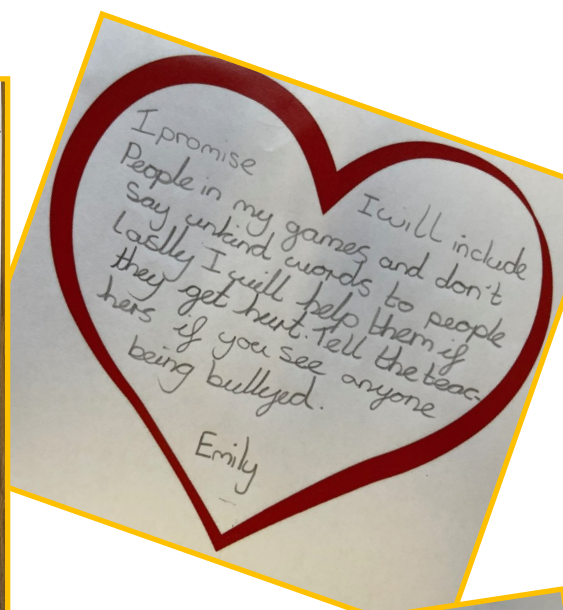 I promise
I will include
People in my games and don't
Say unkind words to people
lastly I will help them if
they get hurt. Tell the teac-
hers if you see anyone
being bullyed.
Emily